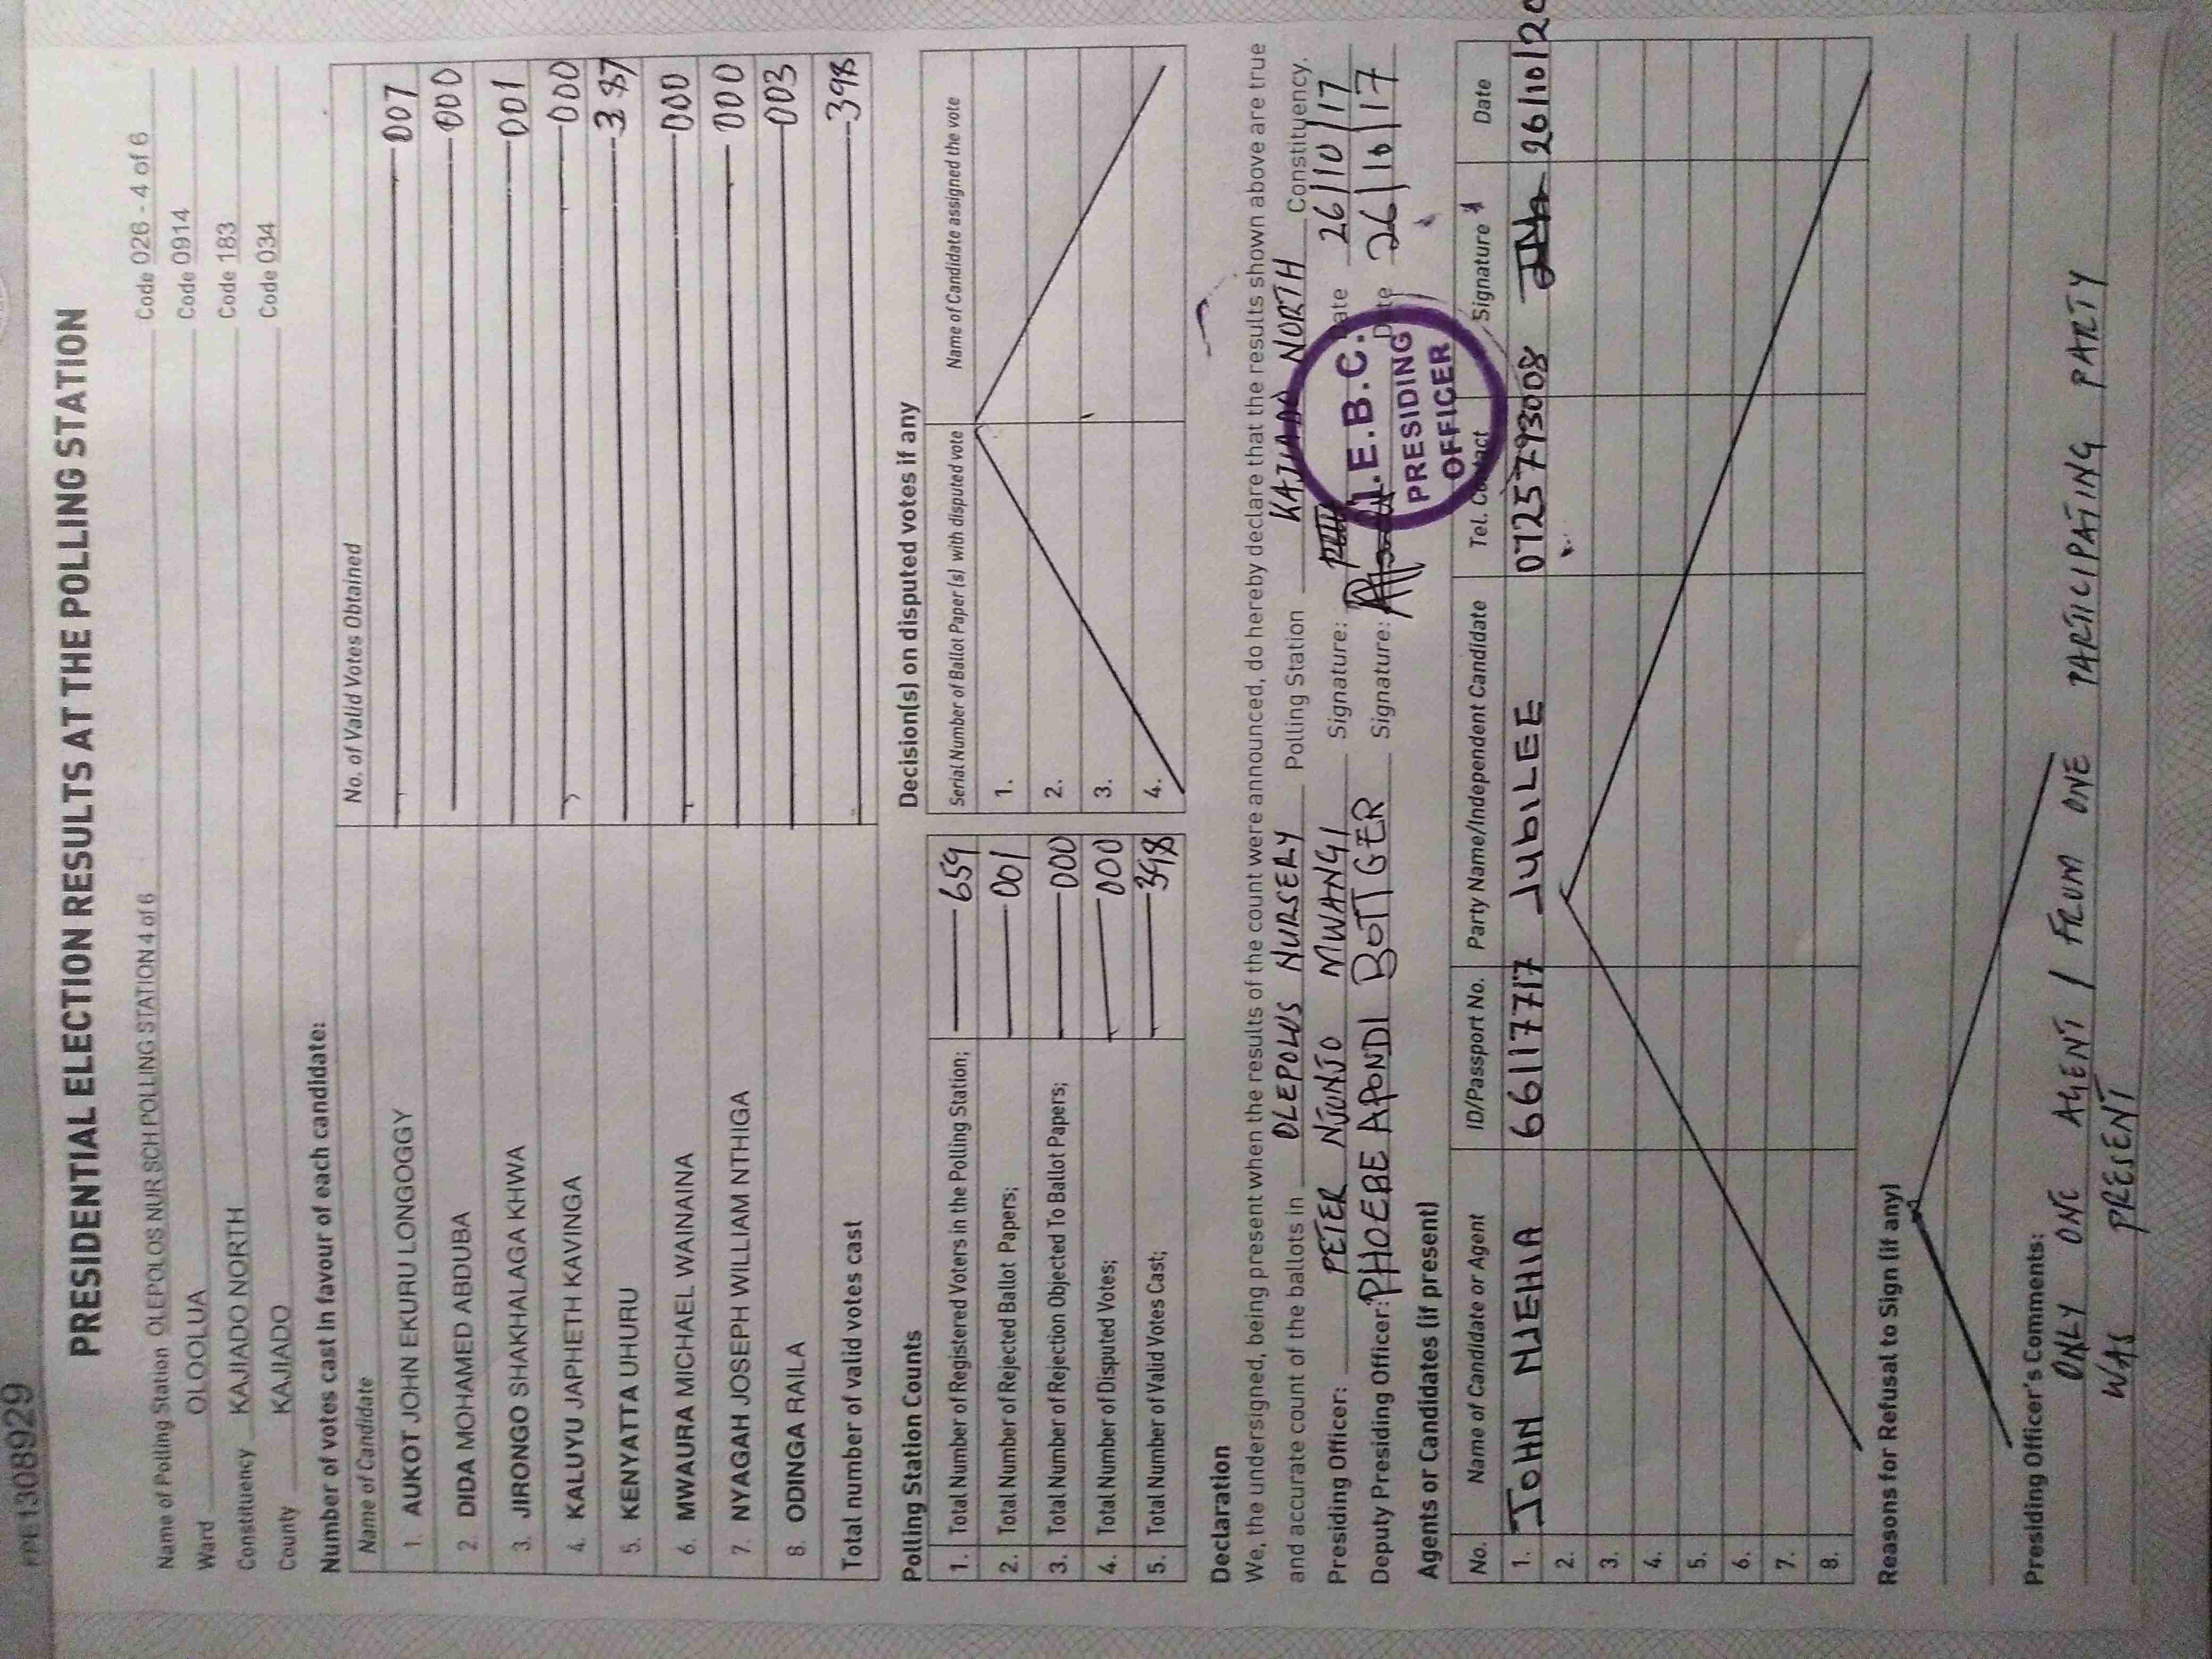 PE1308929
PRESIDENTIAL ELECTION RESULTS AT THE POLLING STATION
Name of Polling Station OLEPOLOS NUR SCH POLLING STATION 4 of 6 Code 026 - 4 of 6
Ward OLOOLUA Code 0914
Constituency KAJIADO NORTH Code 183
County KAJIADO Code 034
Number of votes cast in favour of each candidate:
Name of Candidate No. of Valid Votes Obtained
1. AUKOT JOHN EKURU LONGOGGY 007
2. DIDA MOHAMED ABDUBA 000
3. JIRONGO SHAKHALAGA KHWA 001
4. KALUYU JAPHETH KAVINGA 000
5. KENYATTA UHURU 387
6. MWAURA MICHAEL WAINAINA 000
7. NYAGAH JOSEPH WILLIAM NTHIGA 000
8. ODINGA RAILA 003
Total number of valid votes cast 398
Polling Station Counts
1. Total Number of Registered Voters in the Polling Station; 659
2. Total Number of Rejected Ballot Papers; 001
3. Total Number of Rejection Objected To Ballot Papers; 000
4. Total Number of Disputed Votes; 000
5. Total Number of Valid Votes Cast; 398
Decision(s) on disputed votes if any
Serial Number of Ballot Paper (s) with disputed vote Name of Candidate assigned the vote
1.
2.
3.
4.
Declaration
We, the undersigned, being present when the results of the count were announced, do hereby declare that the results shown above are true
and accurate count of the ballots in OLEPOLUS NURSERY Polling Station KAJIADO NORTH Constituency.
Presiding Officer: PETER NJUNJO MWANGI Signature: Date 26/10/17
Deputy Presiding Officer: PHOEBE APONDI BOTTGER Signature: Date 26/10/17
I.E.B.C.
PRESIDING
OFFICER
Agents or Candidates (if present)
No. Name of Candidate or Agent ID/Passport No. Party Name/Independent Candidate Tel. Contact Signature Date
1. JOHN NJEHIA 66117717 JUBILEE 0725793008 26/10/20
2.
3.
4.
5.
6.
7.
8.
Reasons for Refusal to Sign (if any)
Presiding Officer's Comments:
ONLY ONE AGENT / FROM ONE PARTICIPATING PARTY
WAS PRESENT